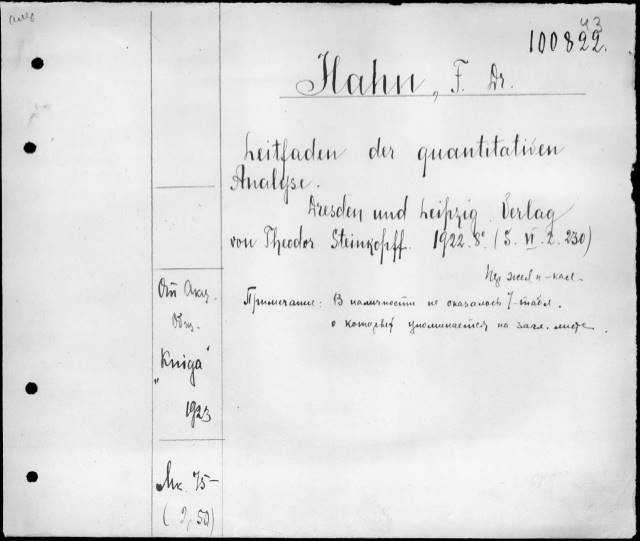 43
100822.
Hahn, F. Dr.
Leitfaden der quantitativen
Analyse.
Dresden und Leipzig. Verlag
von Theodor Steinkopff. 1922. 8° (S. VI. 2. 230)
Примечание: В наличности не оказалось 7-табл.
о которых упоминается на загл. листе.
От Акц.
Общ.
"Kniga"
1923
Mk. 75-
(2,50)